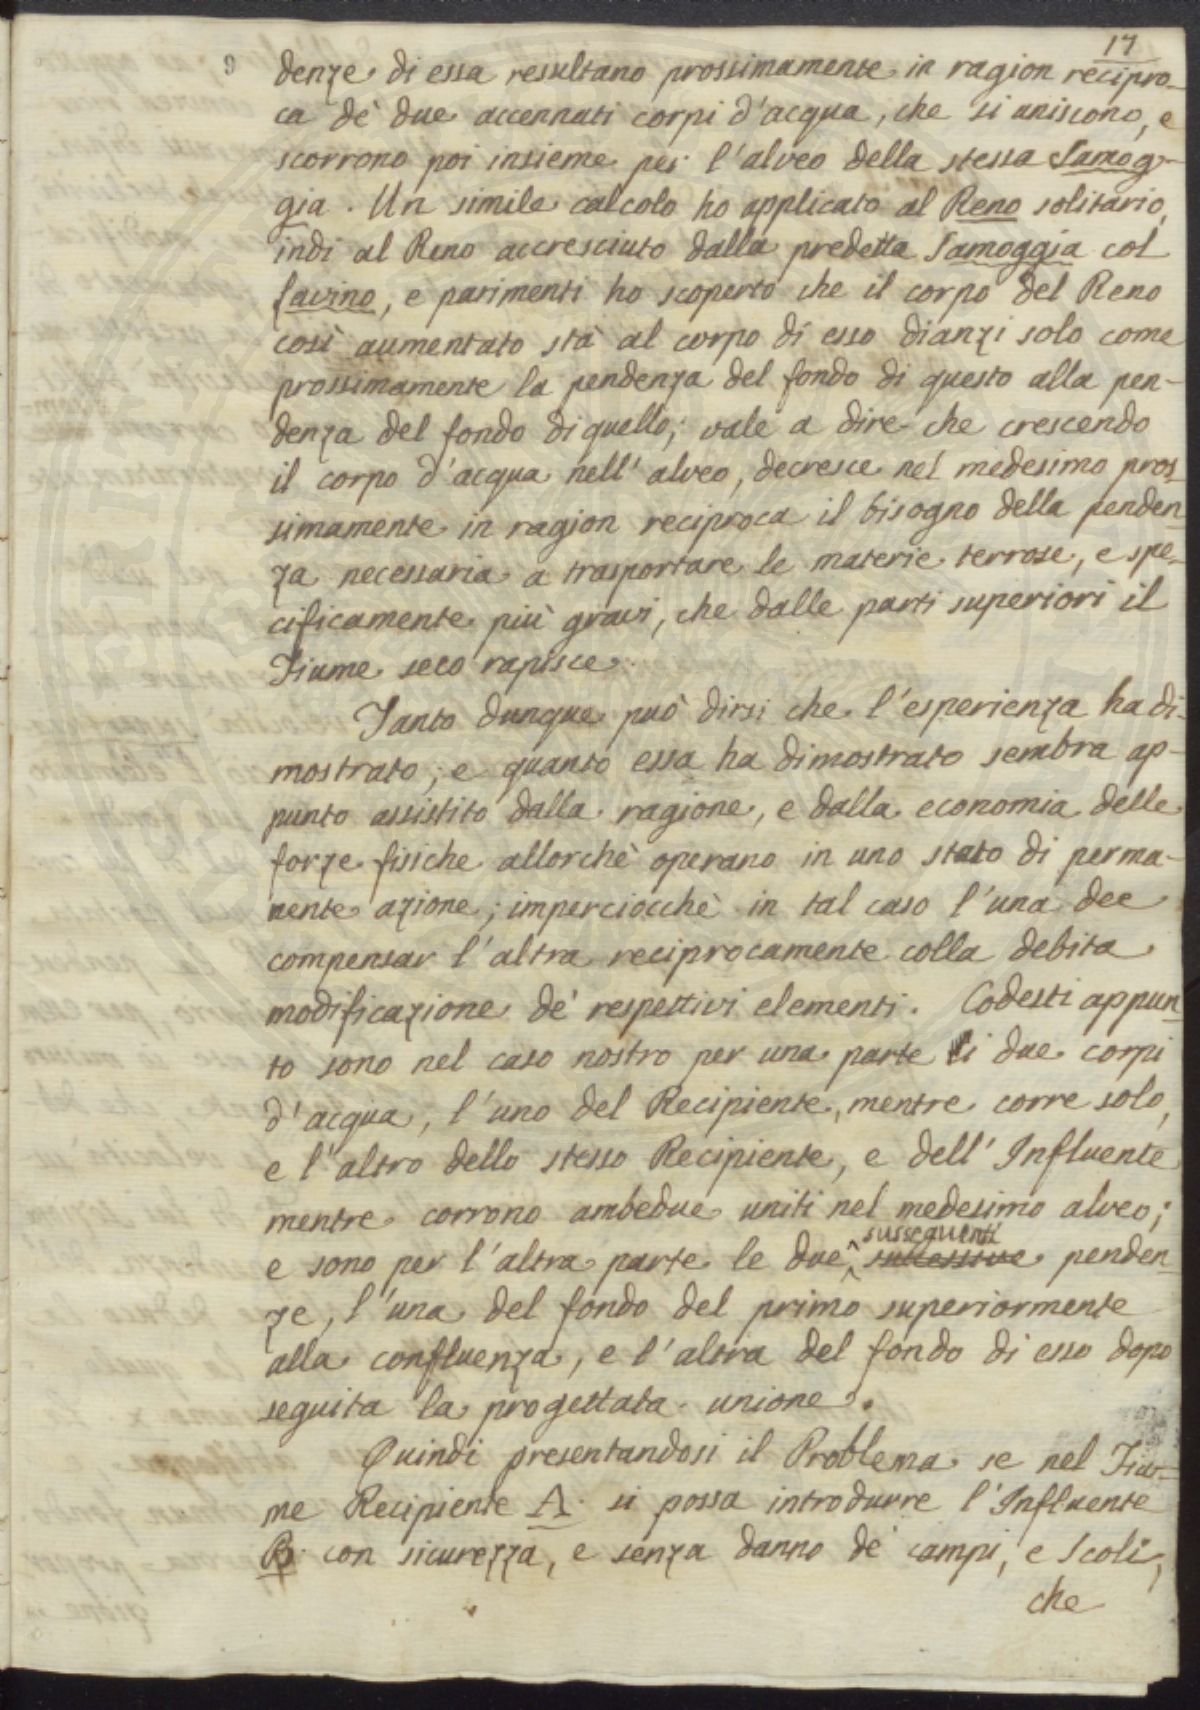 17
denze di essa resultano prossimamente in ragion recipro-
ca dè due accennati corpi d'acqua, che si uniscono, e
scorrono poi insieme per l'alveo della stessa Samog-
gia. Un simile calcolo ho applicato al Reno solitario,
indi al Reno accresciuto dalla predetta Samoggia col
Lavino, e parimenti ho scoperto che il corpo del Reno
così aumentato stà al corpo di esso dianzi solo come
prossimamente la pendenza del fondo di questo alla pen-
denza del fondo di quello; vale a dire che crescendo
il corpo d'acqua nell'alveo, decresce nel medesimo pros-
simamente in ragion reciproca il bisogno della penden-
za necessaria a trasportare le materie terrose, e spe-
cificamente più gravi, che dalle parti superiori il
Fiume seco rapisce.
Tanto dunque può dirsi che l'esperienza ha di-
mostrato; e quanto essa ha dimostrato sembra ap-
punto assistito dalla ragione, e dalla economia delle
forze fisiche allorchè operano in uno stato di perma-
nente azione; imperciocchè in tal caso l'una dee
compensar l'altra reciprocamente colla debita
modificazione de' respettivi elementi. Codesti appun-
to sono nel caso nostro per una parte li due corpi
d'acqua, l'uno del Recipiente, mentre corre solo,
e l'altro dello stesso Recipiente, e dell'Influente
mentre corrono ambedue uniti nel medesimo alveo;
susseguenti
e sono per l'altra parte le due successive penden-
ze, l'una del fondo del primo superiormente
alla confluenza, e l'altra del fondo di esso dopo
seguita la progettata unione.
Quindi presentandosi il Problema se nel Fiu-
me Recipiente A si possa introdurre l'Influente
B con sicurezza, e senza danno de' campi, e Scoli,
che